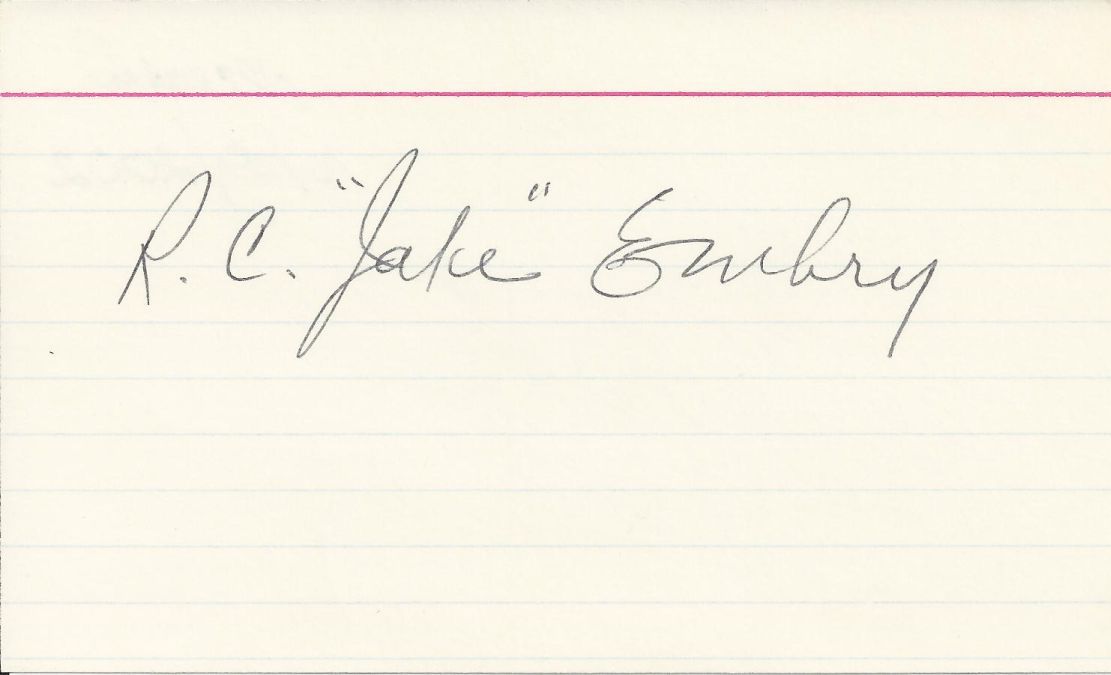 R. C. "Jake" Embry